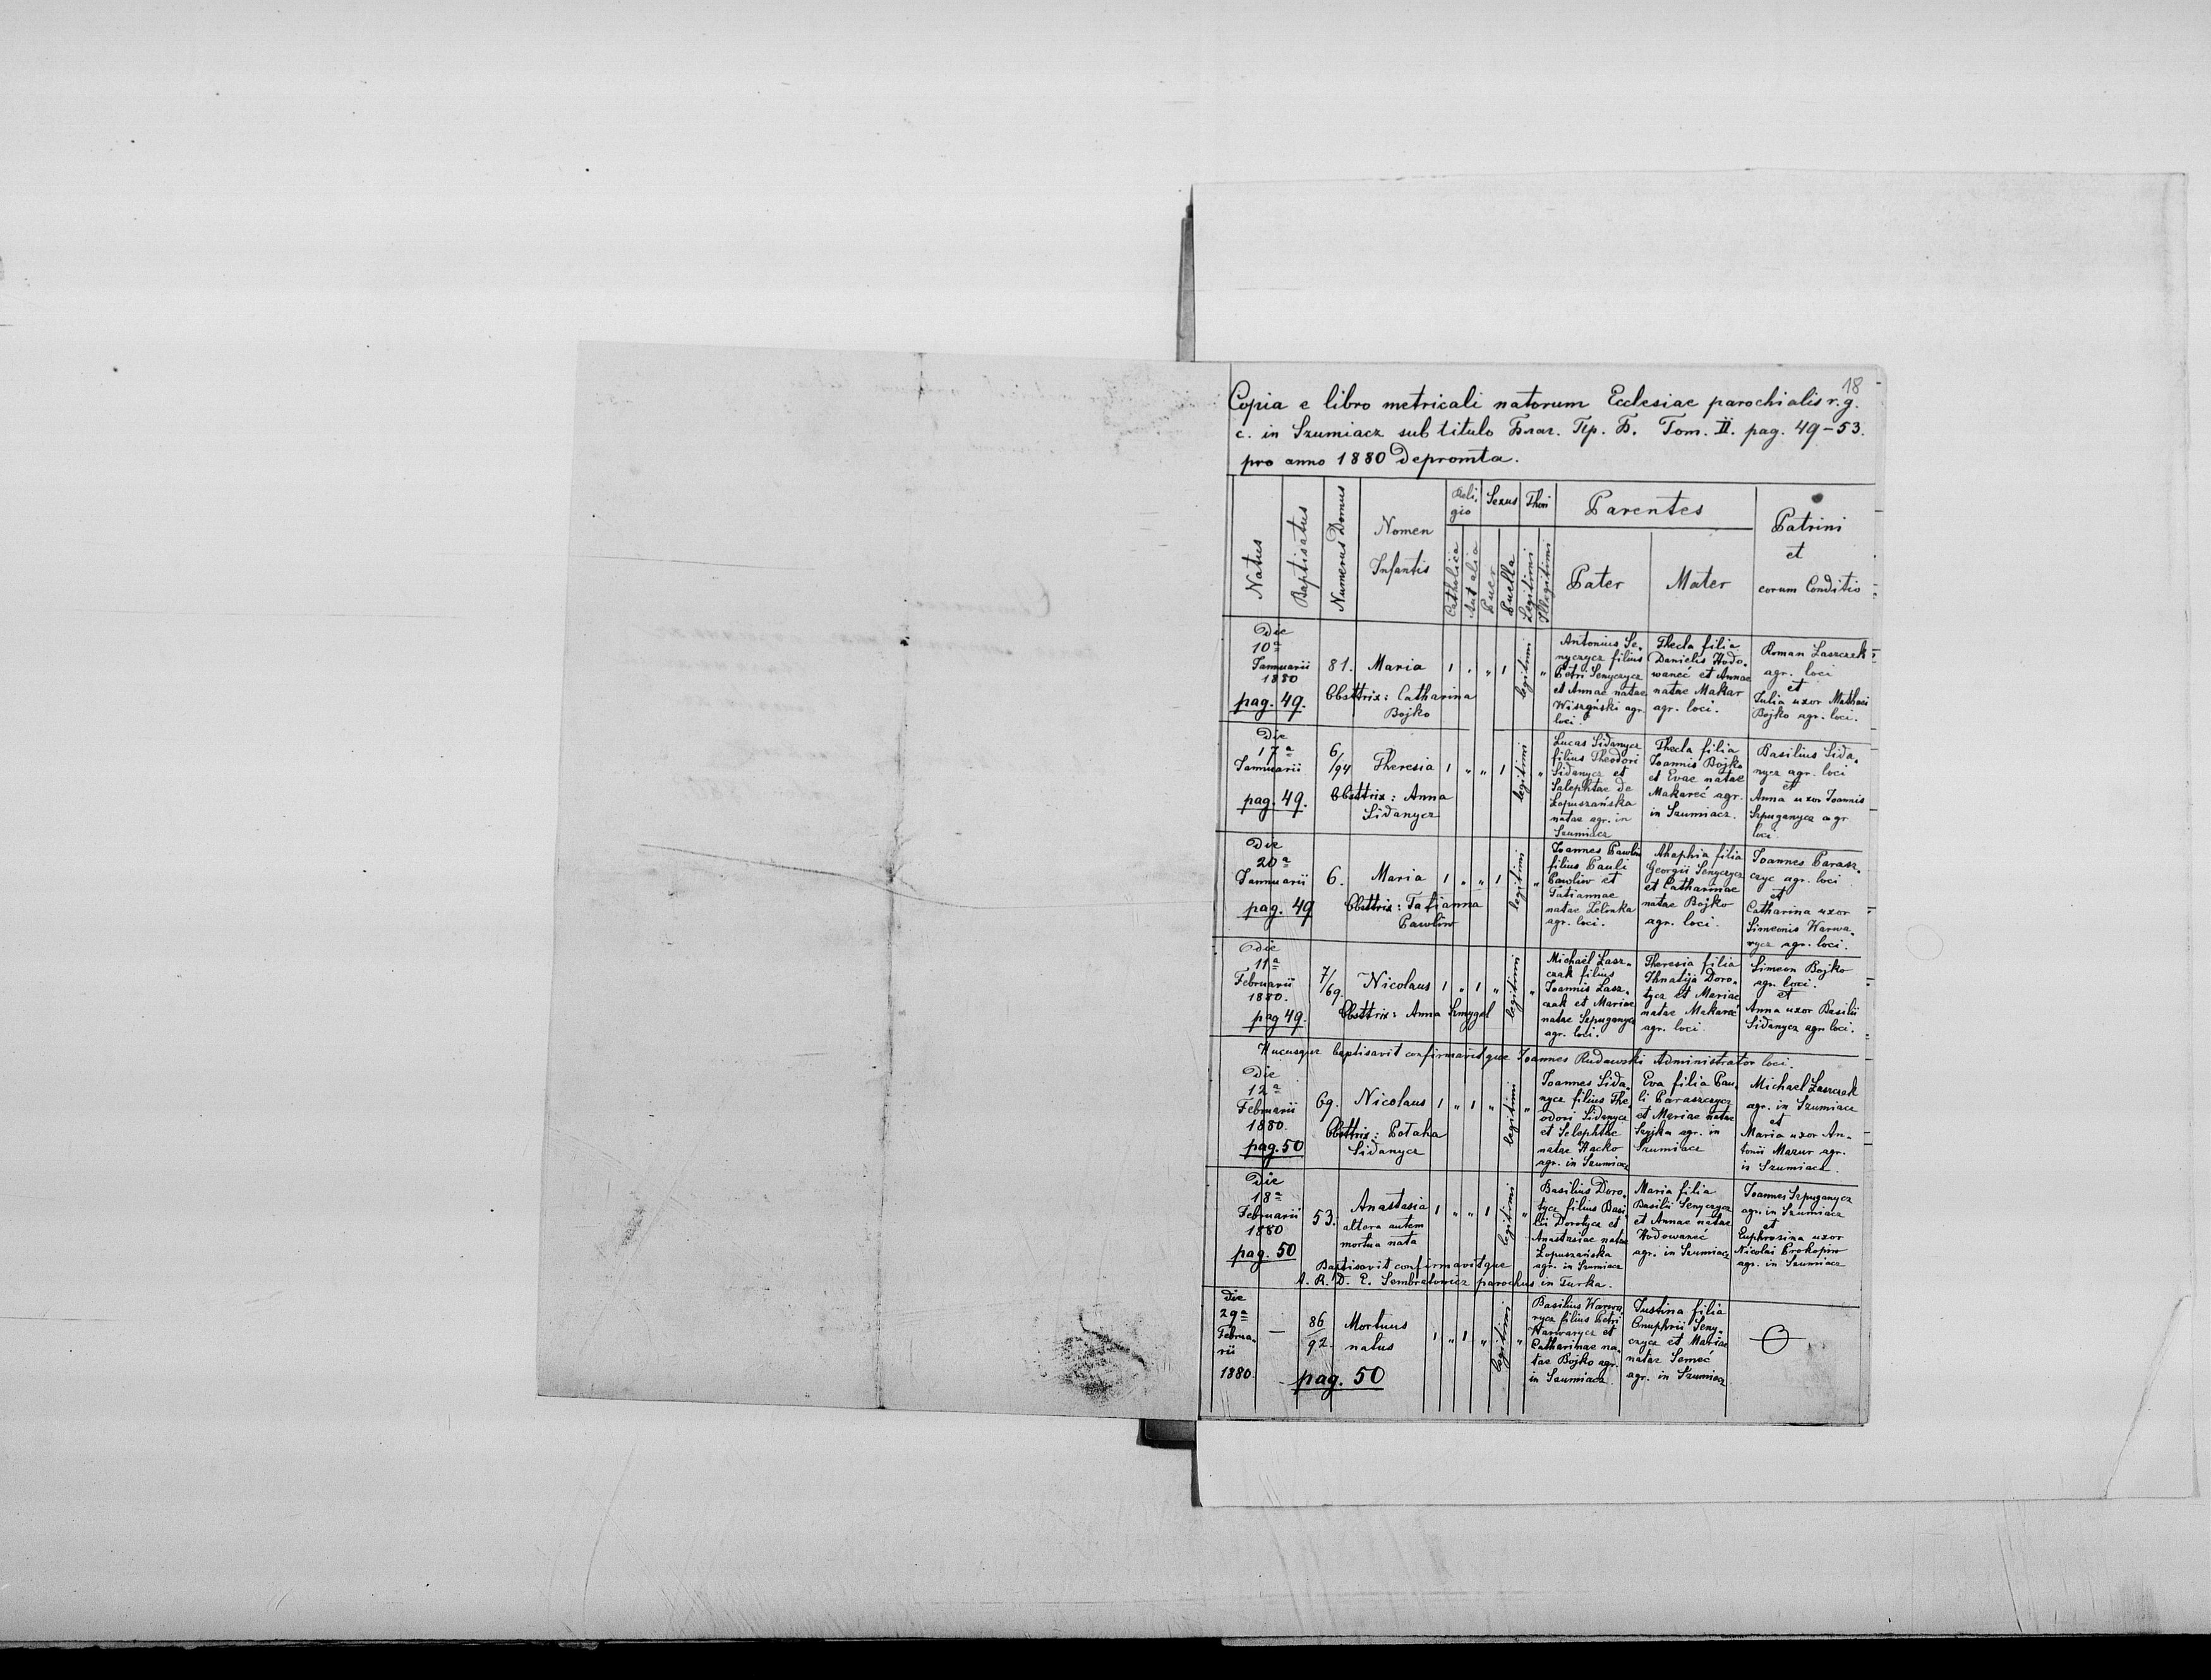 18
Copia e libro metricali natorum Ecclesiae parochialis r. g.
c. in Szumiacz sub titulo Благ. Пр. Б. Tom. II. pag. 49-53.
pro anno 1880 Depromta.
Natus
Baptisatus
Numerus Domus
Nomen
Infantis
Reli-
gio
Catholica
Aut alia
Sexus
Puer
Puella
Thori
Legitimi
Illegitimi
Parentes
Pater
Mater
Patrini
et
eorum Conditio
Die
10a
Januarii
1880
pag. 49.
81.
Maria
1 " " 1
legitimi
"
Obsttrix: Catharina
Bojko
Antonius Se-
nyczycz filius
Petri Senyczycz
et Annae natae
agr.
loci.
Thecla filia
Danielis Wodo-
waneć et Annae
natae Makar
agr. loci.
Roman Laszczak
agr. loci
et
Julia uxor Mathaei
Bojko agr. loci.
Die
17a
Januarii
pag. 49.
6/94
Theresia
1 " " 1
legitimi
"
Obsttrix: Anna
Sidanycz
Lucas Sidanycz
filius Theodori
Sidanycz et
Salephtae de
Łopuszańska
natae agr. in
Szumiacz
Thecla filia
Joannis Bojko
et Evae natae
Makareć agr.
in Szumiacz.
Basilius Sida-
nycz agr. loci
et
Anna uxor Joannis
Szpuganycz agr.
loci.
Die
20a
Januarii
pag. 49
6.
Maria
1 " " 1
legitimi
"
Obsttrix: Tatianna
Pawliw
Joannes Pawliw
filius Pauli
Pawliw et
Tatiannae
natae Zelinka
agr. loci.
Ahaphia filia
Georgii Senyczycz
et Catharinae
natae Bojko
agr. loci.
Joannes Parasz-
czyc agr. loci
et
Catharina uxor
Simeonis Warwa-
rycz agr. loci.
Die
11a
Februarii
1880.
pag 49.
7/69.
Nicolaus
1 " 1 "
legitimi
"
Obsttrix: Anna Szmygel
Michael Lasz-
czak filius
Joannis Lasz-
czak et Mariae
natae Szpuganycz
agr. loci.
Theresia filia
Ihnatija Doro-
tycz et Mariae
natae Makareć
agr. loci.
Simeon Bojko
agr. loci.
et
Anna uxor Basilii
Sidanycz agr loci.
Hucusque baptisavit confirmavitque Joannes Rudawski Administrator loci.
Die
12a
Februarii
1880.
pag. 50
69.
Nicolaus
1 " 1 "
legitimi
"
Obsttrix: Połaha
Sidanycz
Joannes Sida-
nycz filius The-
odori Sidanycz
et Selephthe
natae Hacko
agr. in Szumiacz
Eva filia Pau-
li Paraszczycz
et Mariae natae
agr. in
Szumiacz
Michael Laszczak
agr. in Szumiacz
et
Maria uxor An-
tonii Mazur agr.
in Szumiacz.
Die
18a
Februarii
1880
pag. 50
53.
Anastasia
altera autem
mortua nata
1 " " 1
legitimi
"
Basilius Doro-
tycz filius Basi-
lii Dorotycz et
Anastasiae natae
Łopuszańska
agr. in Szumiacz
Maria filia
Basilii Senyczycz
et Annae natae
Wodowaneć
agr. in Szumiacz
Joannes Szpuganycz
agr. in Szumiacz
et
Euphrosina uxor
Nicolai Prokopiw
agr. in Szumiacz
Baptisavit confirmavitque
A. R. D. E. Sembratowicz parochus in Turka.
die
29a
Februa-
rii
1880.
—
86
92.
Mortuus
natus
1 " 1 "
legitimi
"
pag. 50
Basilius Warwa-
rycz filius Petri
Warwarycz et
Catharinae na-
tae Bojko agr.
in Szumiacz.
Justina filia
Onuphrii Seny-
czycz et Mariae
natae Semeć
agr. in Szumiacz